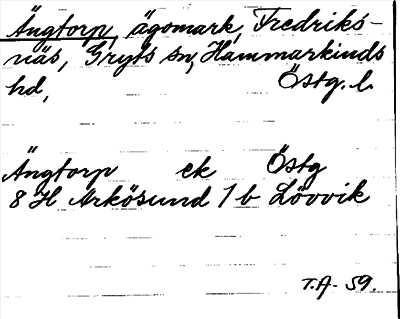 Ängtorp, ägomark, Fredriks-
näs, Gryts sn, Hammarkinds
hd, Östg. l.
Ängtorp ek Östg
8 H Arkösund 1 b Lövvik
T.A. 59.